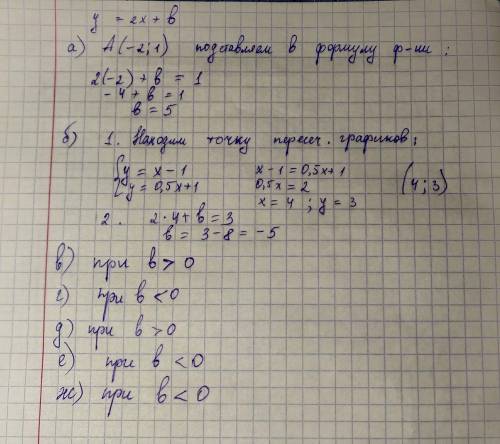 y = 2x + b
а) A(-2; 1) подставляем в формулу ф-ии:
2(-2) + b = 1
-4 + b = 1
b = 5
б) 1. Находим точку пересеч. графиков:
{y = x - 1
y = 0,5x+1
x - 1 = 0,5x+1
0,5x = 2
x = 4 ; y = 3
(4; 3)
2. 2·4 + b = 3
b = 3-8 = -5
в) при b > 0
г) при b < 0
д) при b > 0
е) при b < 0
ж) при b < 0